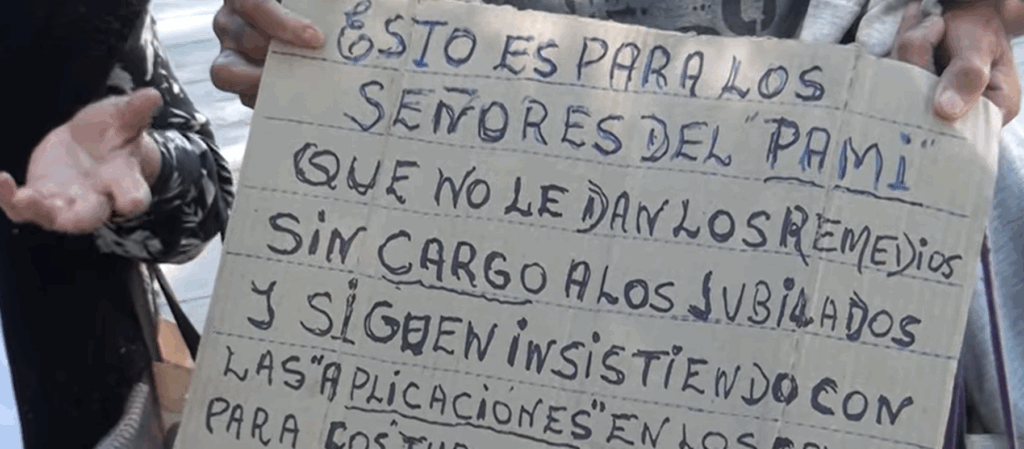 ESTO ES PARA LOS
SEÑORES DEL "PAMI"
QUE NO LE DAN LOS REMEDIOS
SIN CARGO A LOS JUBILADOS
Y SIGUEN INSISTIENDO CON
LAS "APLICACIONES" EN LOS
PARA